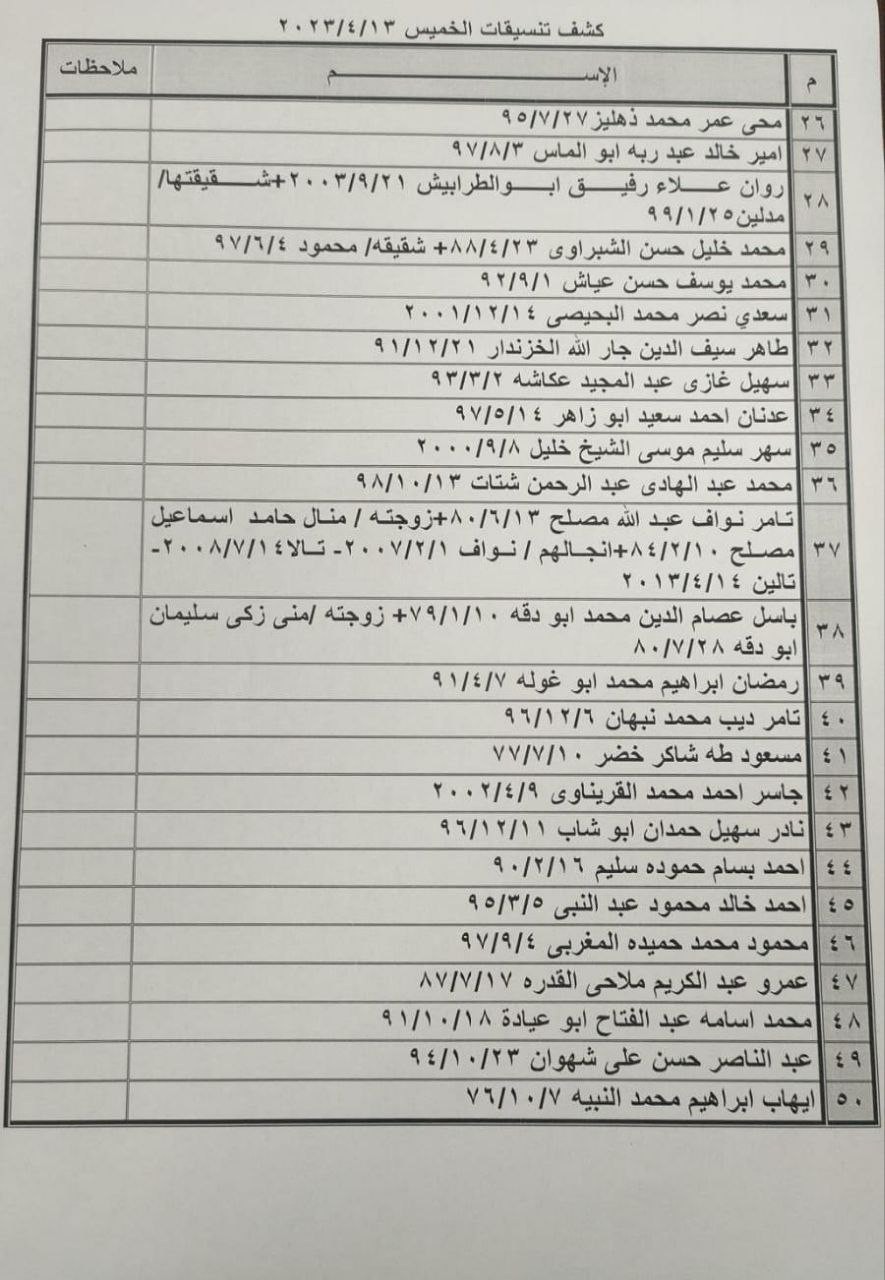 كشف تنسيقات الخميس ٢٠٢٣/٤/١٣
م الإســـــــــــــــم ملاحظات
٢٦ محى عمر محمد ذهليز ٩٥/٧/٢٧
٢٧ امير خالد عبد ربه ابو الماس ٩٧/٨/٣
٢٨ روان عـــلاء رفيـــق ابـــوالطرابيش ٢٠٠٣/٩/٢١+شـــقيقتها/
مدلين ٩٩/١/٢٥
٢٩ محمد خليل حسن الشبراوى ٨٨/٤/٢٣+ شقيقه/ محمود ٩٧/٦/٤
٣٠ محمد يوسف حسن عياش ٩٢/٩/١
٣١ سعدي نصر محمد البحيصى ٢٠٠١/١٢/١٤
٣٢ طاهر سيف الدين جار الله الخزندار ٩١/١٢/٢١
٣٣ سهيل غازى عبد المجيد عكاشه ٩٣/٣/٢
٣٤ عدنان احمد سعيد ابو زاهر ٩٧/٥/١٤
٣٥ سهر سليم موسى الشيخ خليل ٢٠٠٠/٩/٨
٣٦ محمد عبد الهادى عبد الرحمن شتات ٩٨/١٠/١٣
٣٧ تامر نواف عبد الله مصلح ٨٠/٦/١٣+زوجته / منال حامد اسماعيل
مصلح ٨٤/٢/١٠+انجالهم / نواف ٢٠٠٧/٢/١- تالا٢٠٠٨/٧/١٤-
تالين ٢٠١٣/٤/١٤
٣٨ باسل عصام الدين محمد ابو دقه ٧٩/١/١٠+ زوجته /منى زكى سليمان
ابو دقه ٨٠/٧/٢٨
٣٩ رمضان ابراهيم محمد ابو غوله ٩١/٤/٧
٤٠ تامر ديب محمد نبهان ٩٦/١٢/٦
٤١ مسعود طه شاكر خضر ٧٧/٧/١٠
٤٢ جاسر احمد محمد القريناوى ٢٠٠٢/٤/٩
٤٣ نادر سهيل حمدان ابو شاب ٩٦/١٢/١١
٤٤ احمد بسام حموده سليم ٩٠/٢/١٦
٤٥ احمد خالد محمود عبد النبى ٩٥/٣/٥
٤٦ محمود محمد حميده المغربى ٩٧/٩/٤
٤٧ عمرو عبد الكريم ملاحى القدره ٨٧/٧/١٧
٤٨ محمد اسامه عبد الفتاح ابو عيادة ٩١/١٠/١٨
٤٩ عبد الناصر حسن على شهوان ٩٤/١٠/٢٣
٥٠ ايهاب ابراهيم محمد النبيه ٧٦/١٠/٧